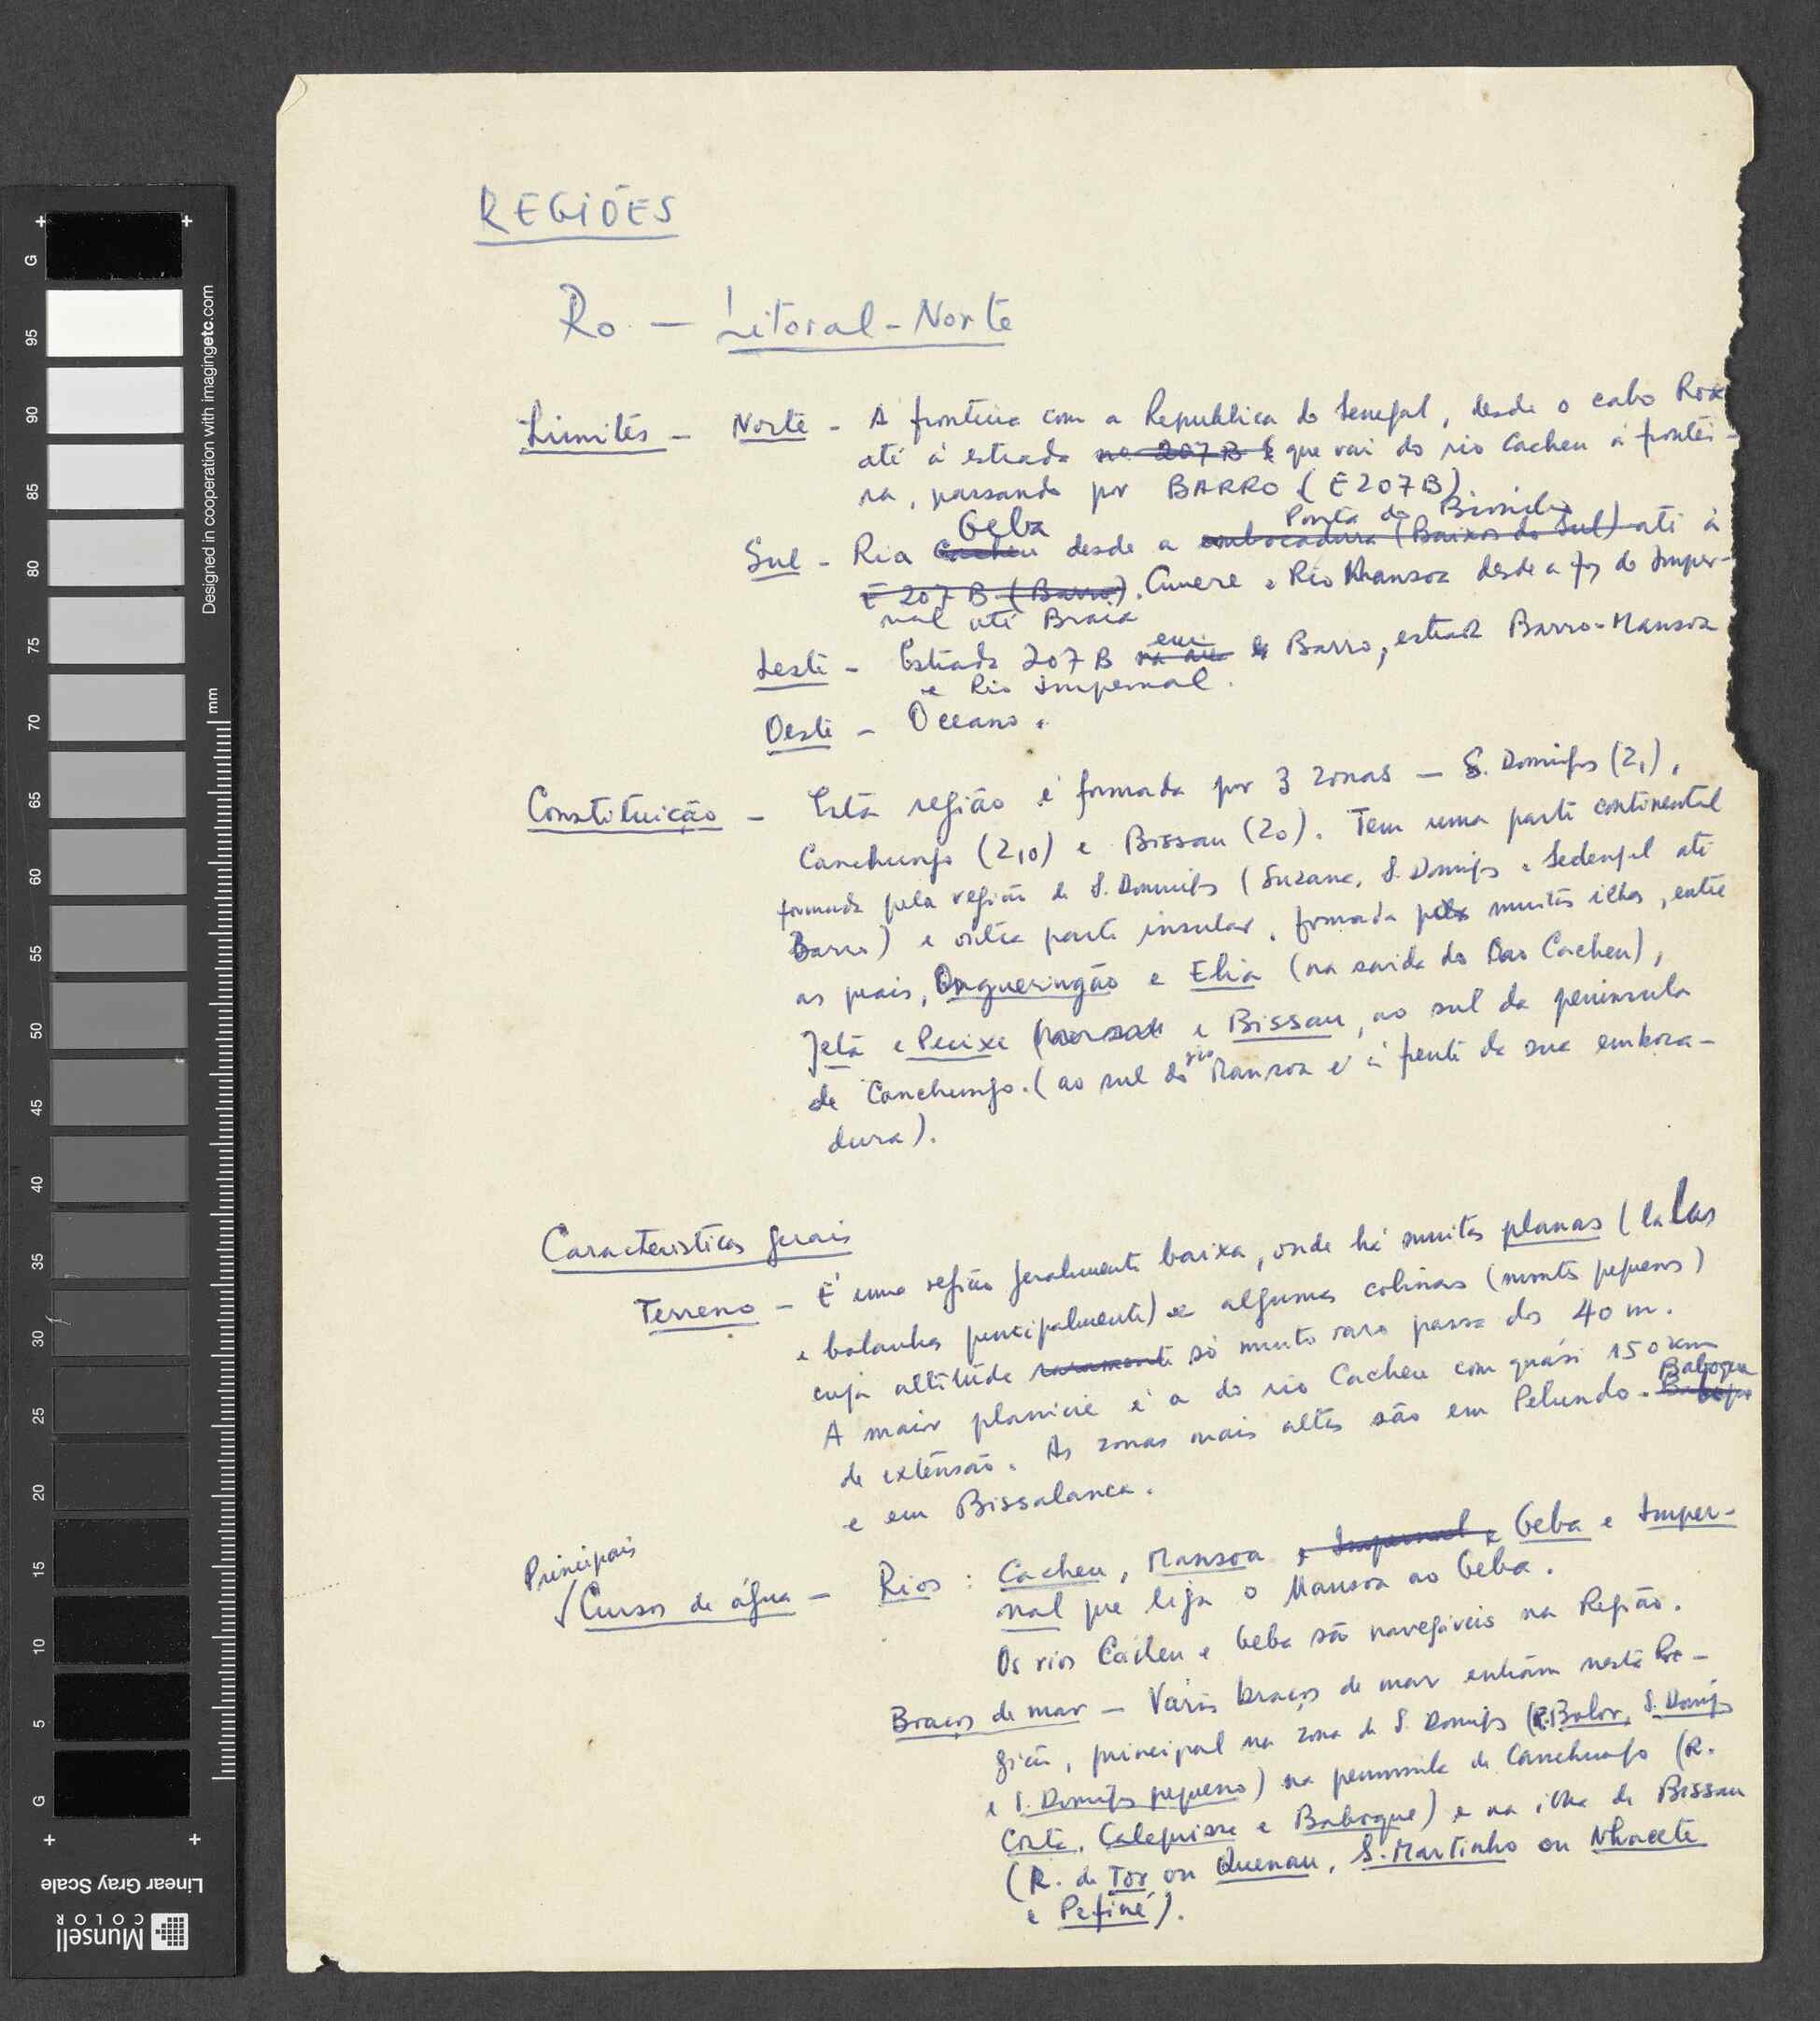 REGIÕES
Ro — Litoral-Norte
Limites — Norte - A fronteira com a Republica do Senegal, desde o cabo Roxo
até à estrada no 207 B e que vai do rio Cacheu à frontei-
ra, passando por BARRO (E 207 B)
Geba Ponta de
Sul - Ria Cacheu desde a embocadura (Baixos do Sul) até à
E 207 B (Barro). Cumere e Rio Mansoa desde a foz do Imper-
nal até Braia
em
Leste - Estrada 207 B Barro, estrada Barro-Mansoa
e Rio Impernal.
Oeste - Oceano.
Constituição - Esta região é formada por 3 zonas — S. Domingos (Z1),
Canchungo (Z10) e Bissau (Z0). Tem uma parte continental
formada pela região de S. Domingos (Suzana, S. Domingos e Sedengal até
Barro) e outra parte insular, formada pelas muitas ilhas, entre
as quais, Ongueringão e Elia (na saida do Rio Cacheu),
Jeta e Pecixe e Bissau, ao sul da peninsula
de Canchungo. (ao sul do rio Mansoa e à frente da sua emboca-
dura).
Caracteristicas gerais
Terreno - É uma região geralmente baixa, onde há muitas planas (lalas
e bolanhas principalmente) e algumas colinas (montes pequenos)
cuja altitude raramente só muito raro passa dos 40 m.
A maior planicie é a do rio Cacheu com quási 150 km
Baboque
de extensão. As zonas mais altas são em Pelundo.
e em Bissalanca.
Principais
Cursos de água — Rios: Cacheu, Mansoa e Impernal e Geba e Imper-
nal que liga o Mansoa ao Geba.
Os rios Cacheu e Geba são navegáveis na Região.
Braços de mar — Vários braços de mar entram nesta Re-
gião, principal na zona de S. Domingos (R. Bolor, S. Domingos
e S. Domingos pequeno) na peninsula de Canchungo (R.
Costa, Calequisse e Baboque) e na ilha de Bissau
(R. de Tor ou Quenau, S. Martinho ou Nhacete
e Pefiné).
Designed in cooperation with imagingetc.com
mm
G
95
90
85
80
75
70
65
60
55
50
45
40
35
30
25
20
15
10
5
G
Linear Gray Scale
Munsell
COLOR